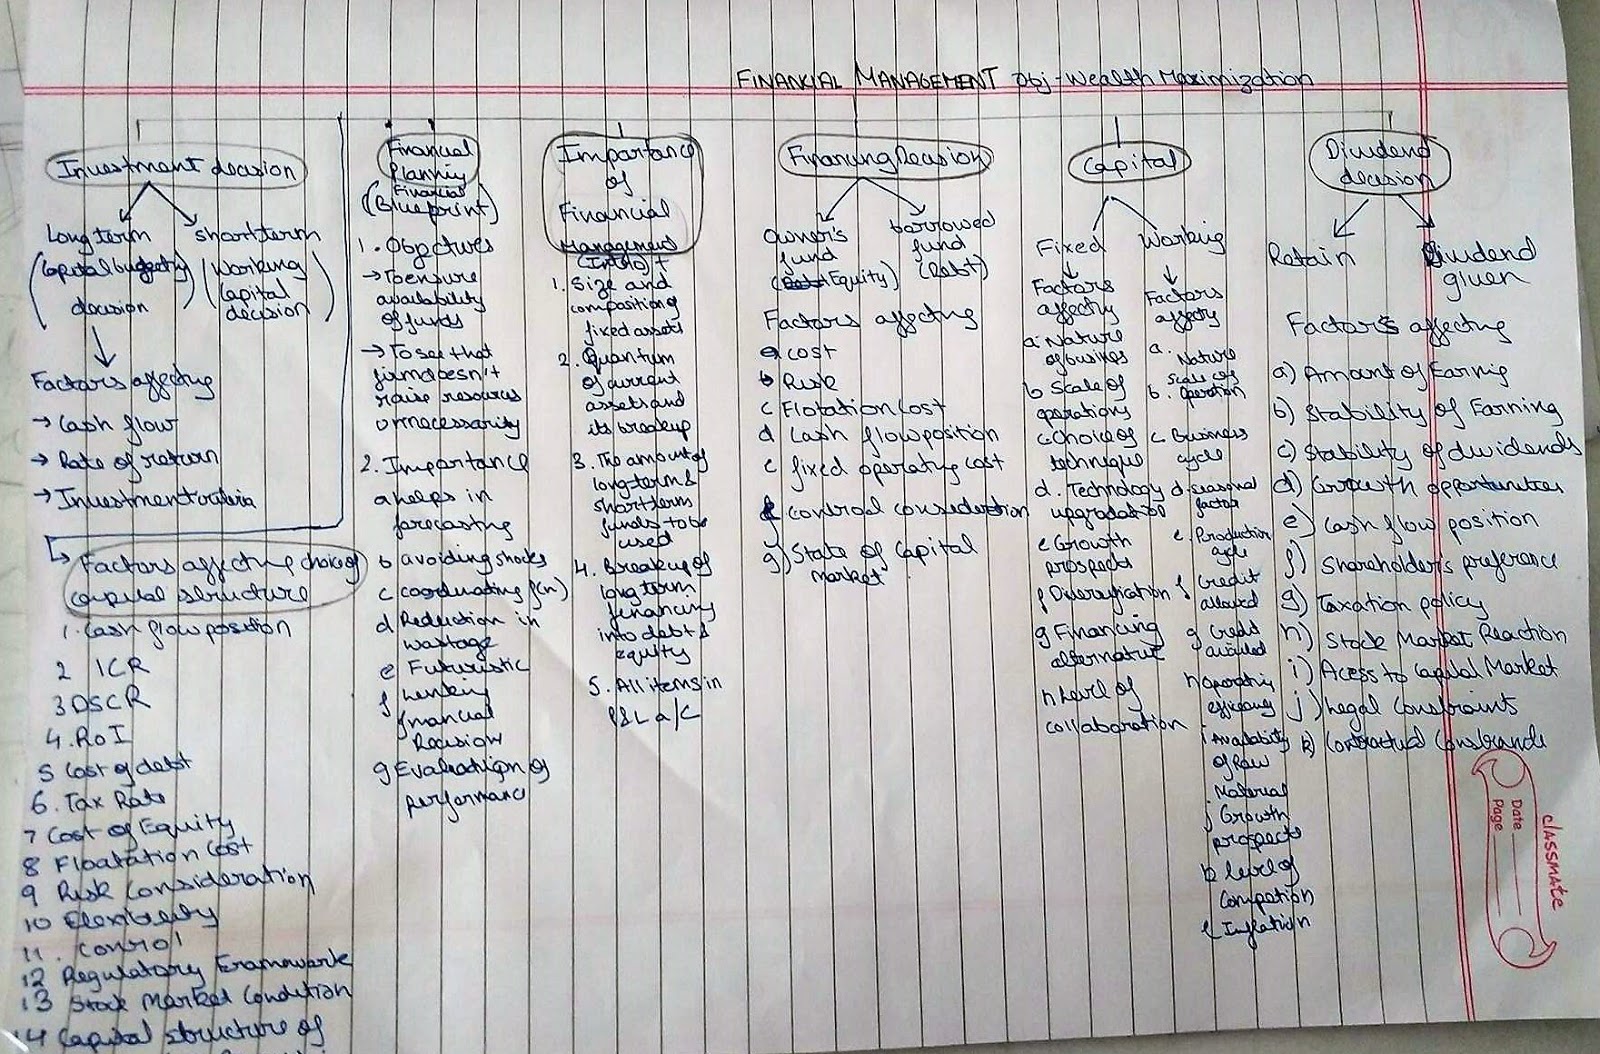 FINANCIAL MANAGEMENT Obj - Wealth Maximization
Investment decision
Long term
(Capital budgeting
decision)
short term
(Working
Capital
decision)
Factors affecting
→ Cash flow
→ Rate of return
→ Investment criteria
Factors affecting choice of
capital structure
1. Cash flow position
2 ICR
3 DSCR
4. RoI
5 Cost of debt
6. Tax Rate
7 Cost of Equity
8 Floatation Cost
9 Risk Consideration
10 Flexibility
11. Control
12 Regulatory Framework
13 Stock Market Condition
14 Capital structure of
Financial
Planning
Financial
(Blueprint)
1. Objectives
→ To ensure
availability
of funds
→ To see that
firm doesn't
raise resources
unnecessarity
2. Importance
a helps in
forecasting
b avoiding shocks
c coordinating f(n)
d Reduction in
wastage
e Futuristic
f Linking
financial
Decision
g Evaluation of
performance
Importance
of
Financial
Management
(Intro) +
1. Size and
composition of
fixed assets
2. Quantum
of current
assets and
its breakup
3. The amount of
long term &
short term
funds to be
used
4. Breakup of
long term
financing
into debt &
equity
5. All items in
P&L a/c
Financing Decision
Owner's
fund
(Equity)
borrowed
fund
(Debt)
Factors affecting
a cost
b Risk
c Flotation Cost
d Cash flow position
e fixed operating cost
f control consideration
g) State of Capital
market
Capital
Fixed
Factors
affecting
a. Nature
of busines
b Scale of
operations
c Choice of
technique
d. Technology
upgradation
e Growth
prospects
f Diversification
g Financing
alternative
h Level of
collaboration
Working
Factors
affecting
a. Nature
b. Scale of
operation
c Business
cycle
d. seasonal
factor
e Production
cycle
f Credit
allowed
g Credit
availed
h Operating
efficiency
i Availability
of Raw
Material
j Growth
prospects
k level of
Competion
l Inflation
Dividend
decision
Retain
Dividend
given
Factors affecting
a) Amount of Earning
b) Stability of Earning
c) Stability of dividends
d) Growth opportunities
e) Cash flow position
f) Shareholder's preference
g) Taxation policy
h) Stock Market Reaction
i) Acess to Capital Market
j) Legal Constraints
k) Contractual
classmate
Date
Page